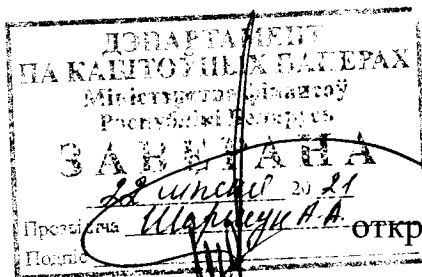 ДЭПАРТАМЕНТ
ПА КАШТОЎНЫХ ПАПЕРАХ
Міністэрства фінансаў
Рэспублікі Беларусь
ЗАВЕРАНА
22 ліпеня 2021
Прозвішча
Подпіс
откр